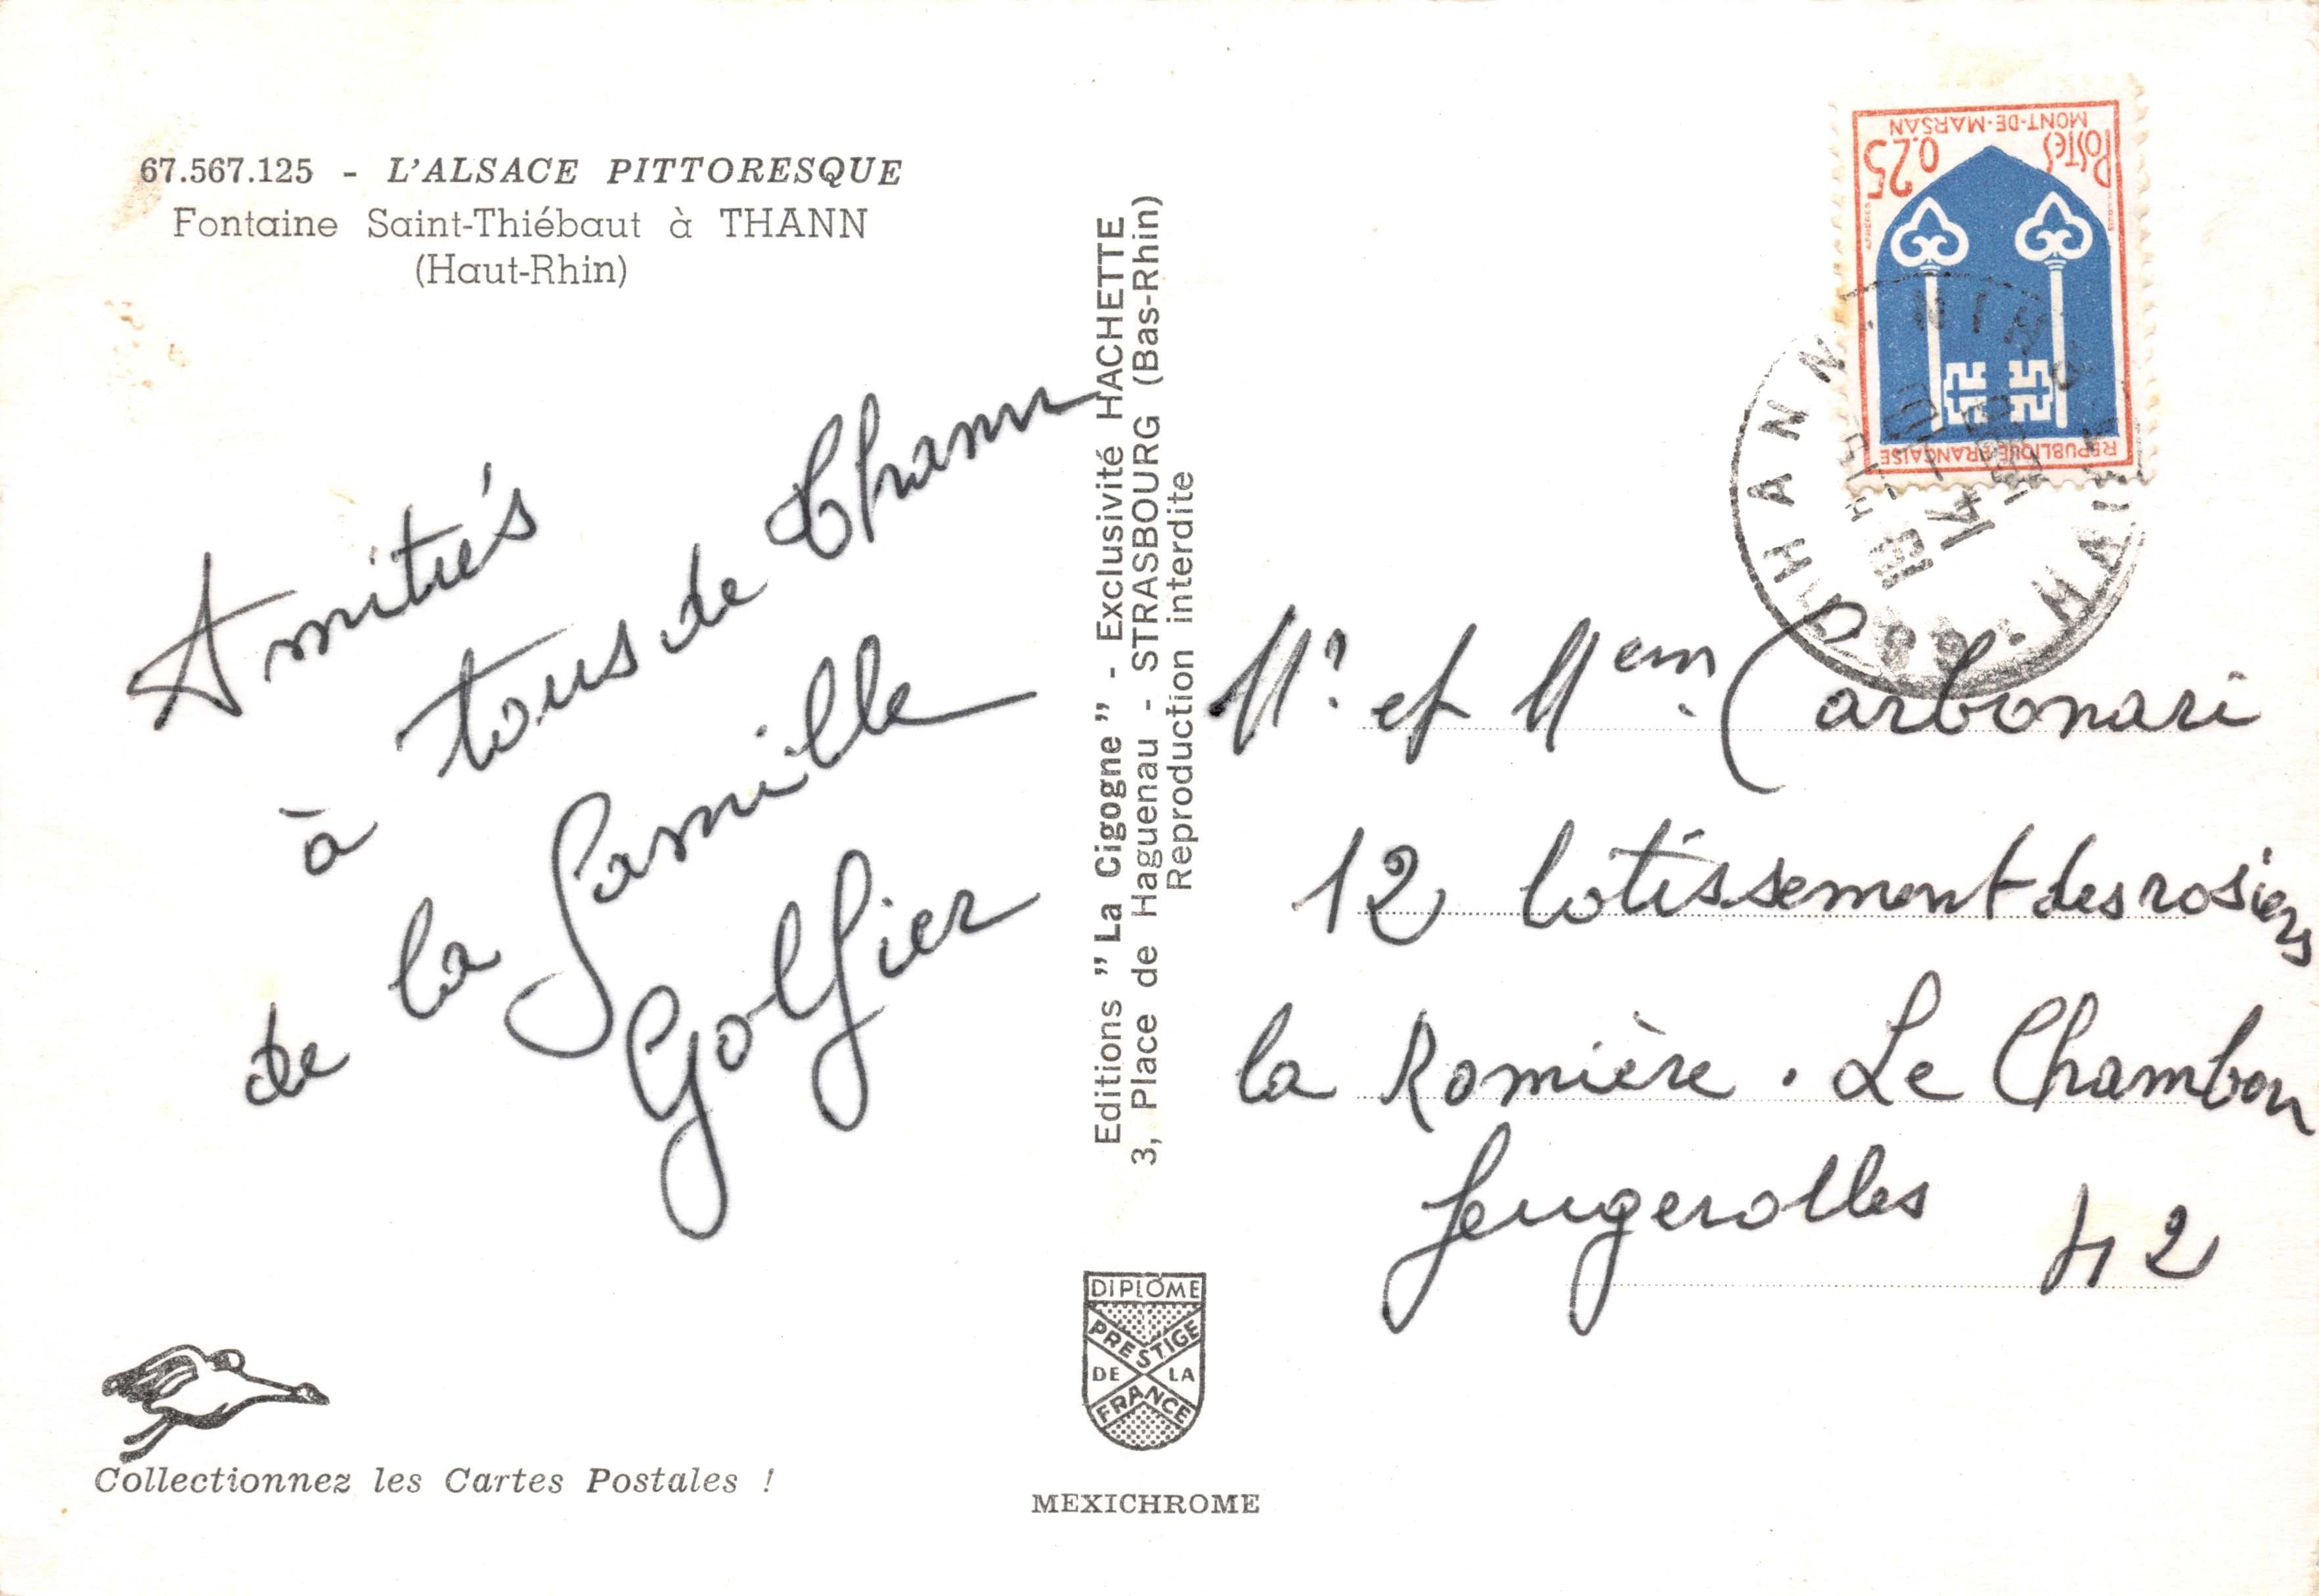 67.567.125 - L'ALSACE PITTORESQUE
Fontaine Saint-Thiébaut à THANN
(Haut-Rhin)
Amitiés
à tous de Thann
de la famille
Golfier
Collectionnez les Cartes Postales !
Editions " La Cigogne " - Exclusivité HACHETTE
3, Place de Haguenau - STRASBOURG (Bas-Rhin)
Reproduction interdite
DIPLÔME
PRESTIGE
DE LA
FRANCE
MEXICHROME
MONT-DE-MARSAN
POSTES
0.25
REPUBLIQUE FRANÇAISE
68 THANN
RHIN
Mr et Mem. Carbonari
12 lotissement des rosiers
la Romière. Le Chambon
feugerolles 42